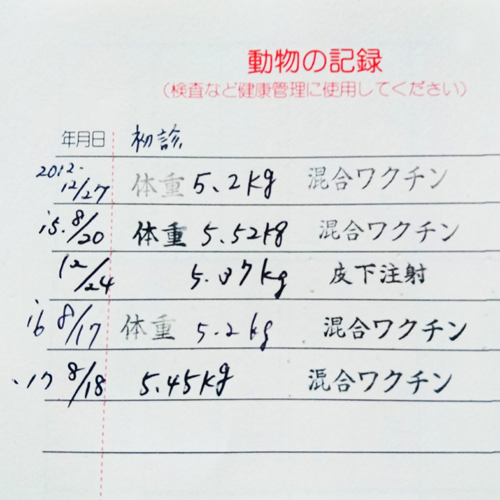 動物の記録
(検査など健康管理に使用してください)
年月日 初診
2012. 12/27 体重 5.2kg 混合ワクチン
'15. 8/20 体重 5.52kg 混合ワクチン
12/24 5.37kg 皮下注射
'16 8/17 体重 5.2kg 混合ワクチン
'17 8/18 5.45kg 混合ワクチン